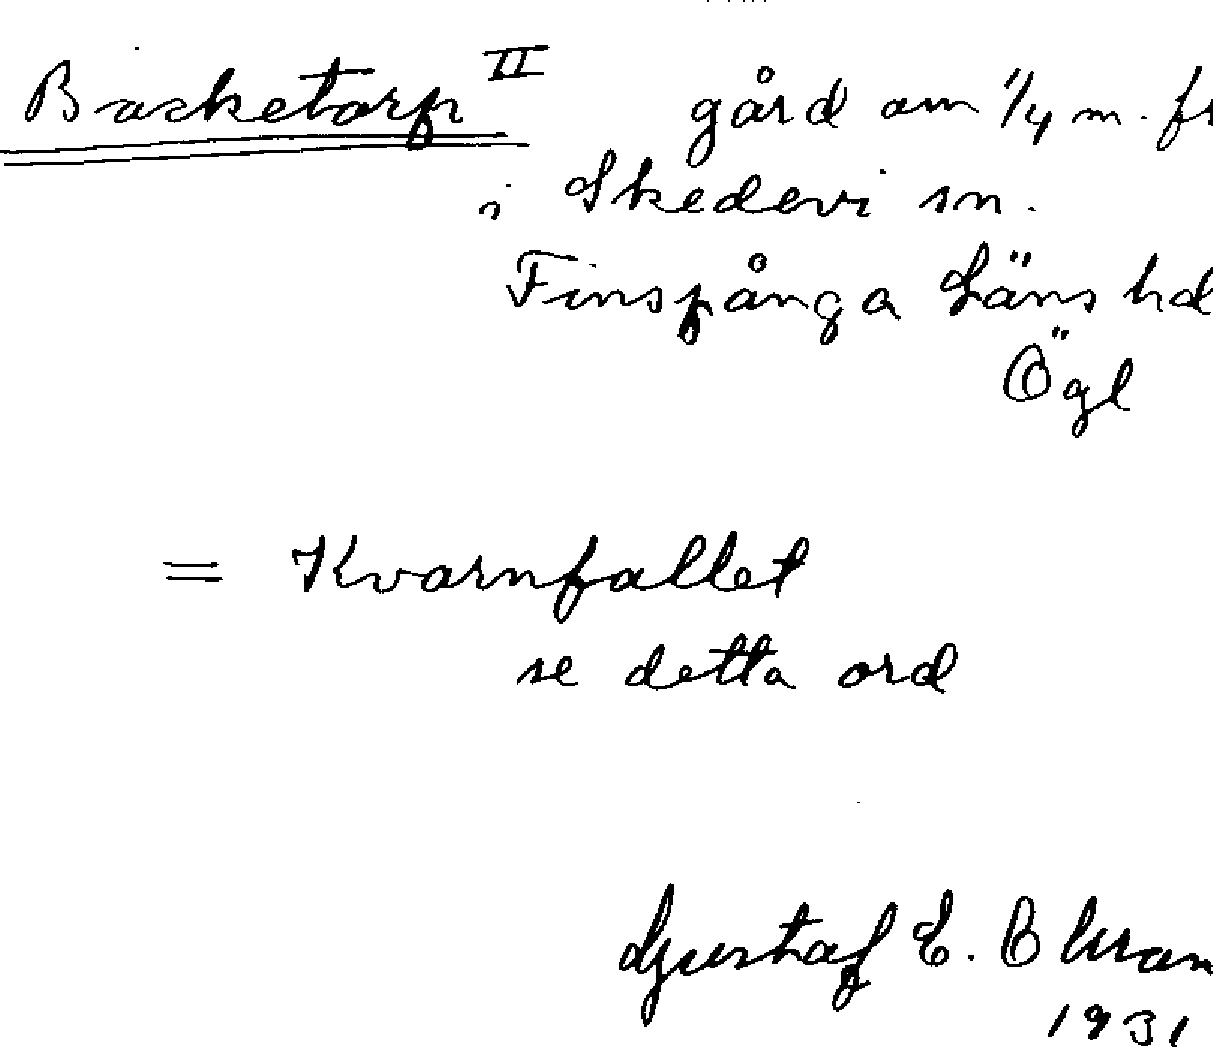 Basketorp II gård om 1/4 m. fr
i Skedevi sn.
Finspånga Läns hd
Ögl
= Kvarnfallet
se detta ord
Gustaf E.
1931